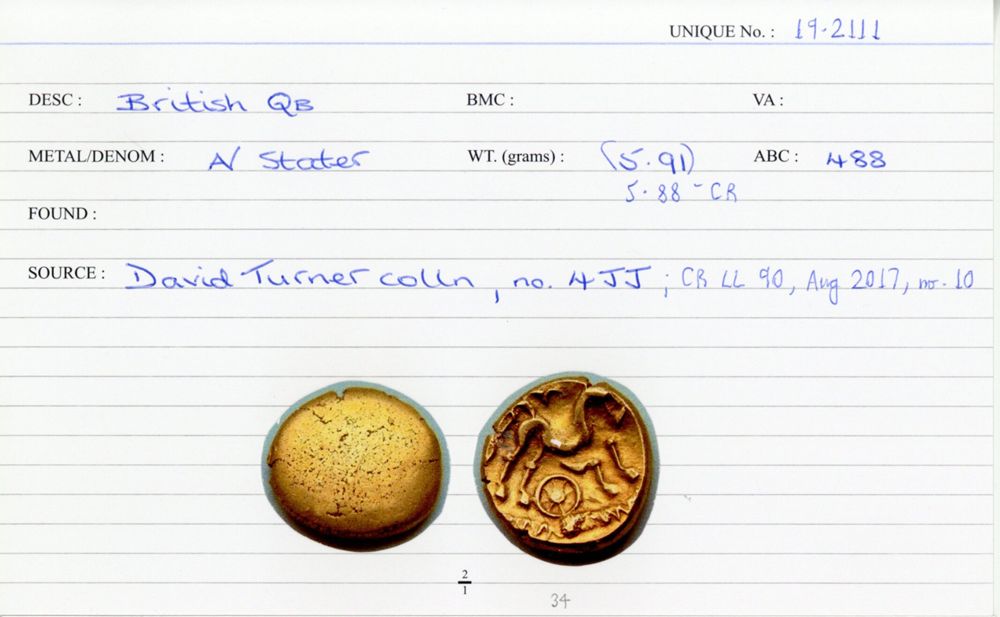 UNIQUE No. : 19-2111
DESC : British QB BMC : VA :
METAL/DENOM : A/ Stater WT. (grams) : (5.91) ABC : 488
5.88 - CR
FOUND :
SOURCE : David Turner colln, no. 4JJ ; CR LL 90, Aug 2017, no. 10
2
1
34